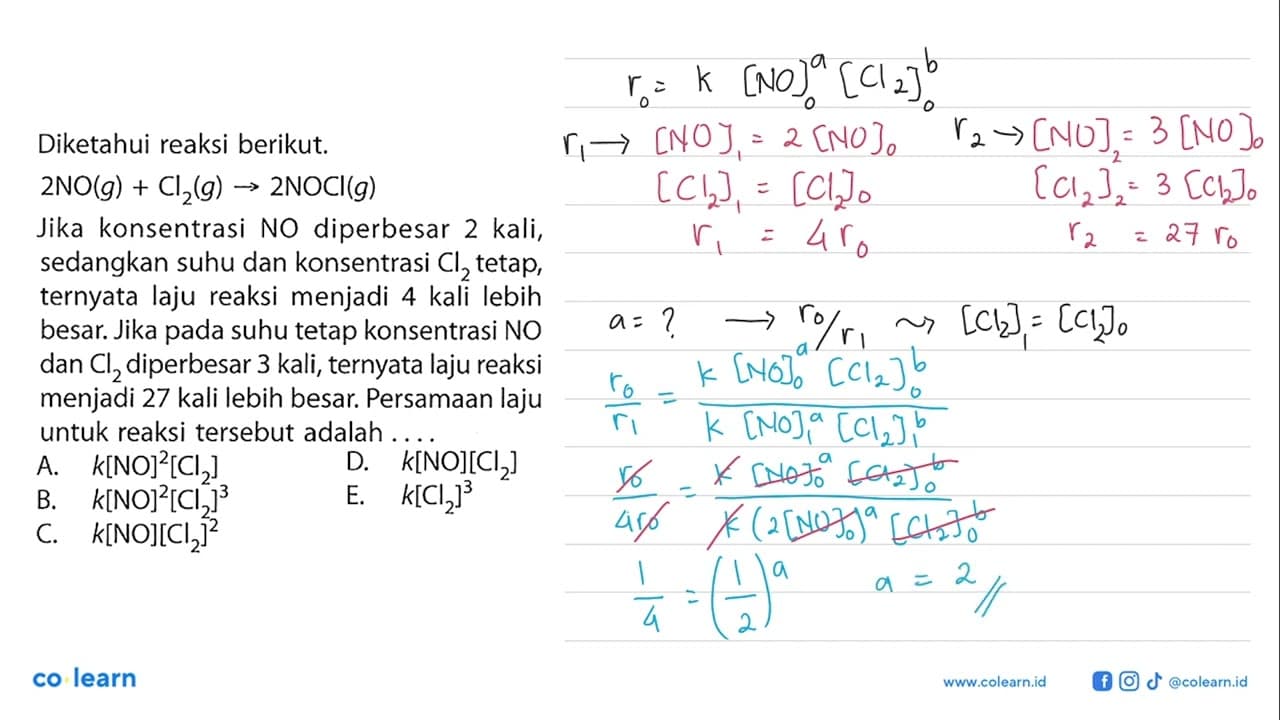 Diketahui reaksi berikut.
2NO(g) + Cl₂(g) → 2NOCl(g)
Jika konsentrasi NO diperbesar 2 kali,
sedangkan suhu dan konsentrasi Cl₂ tetap,
ternyata laju reaksi menjadi 4 kali lebih
besar. Jika pada suhu tetap konsentrasi NO
dan Cl₂ diperbesar 3 kali, ternyata laju reaksi
menjadi 27 kali lebih besar. Persamaan laju
untuk reaksi tersebut adalah . . . .
A. k[NO]²[Cl₂]
B. k[NO]²[Cl₂]³
C. k[NO][Cl₂]²
D. k[NO][Cl₂]
E. k[Cl₂]³
r₀ = k [NO]₀ᵃ [Cl₂]₀ᵇ
r₁ → [NO]₁ = 2 [NO]₀
[Cl₂]₁ = [Cl₂]₀
r₁ = 4 r₀
r₂ → [NO]₂ = 3 [NO]₀
[Cl₂]₂ = 3 [Cl₂]₀
r₂ = 27 r₀
a = ? → r₀/r₁ ⇝ [Cl₂]₁ = [Cl₂]₀
r₀/r₁ = k [NO]₀ᵃ [Cl₂]₀ᵇ / k [NO]₁ᵃ [Cl₂]₁ᵇ
r₀/4r₀ = k [NO]₀ᵃ [Cl₂]₀ᵇ / k (2[NO]₀)ᵃ [Cl₂]₀ᵇ
1/4 = (1/2)ᵃ a = 2 //
co learn
www.colearn.id
@colearn.id